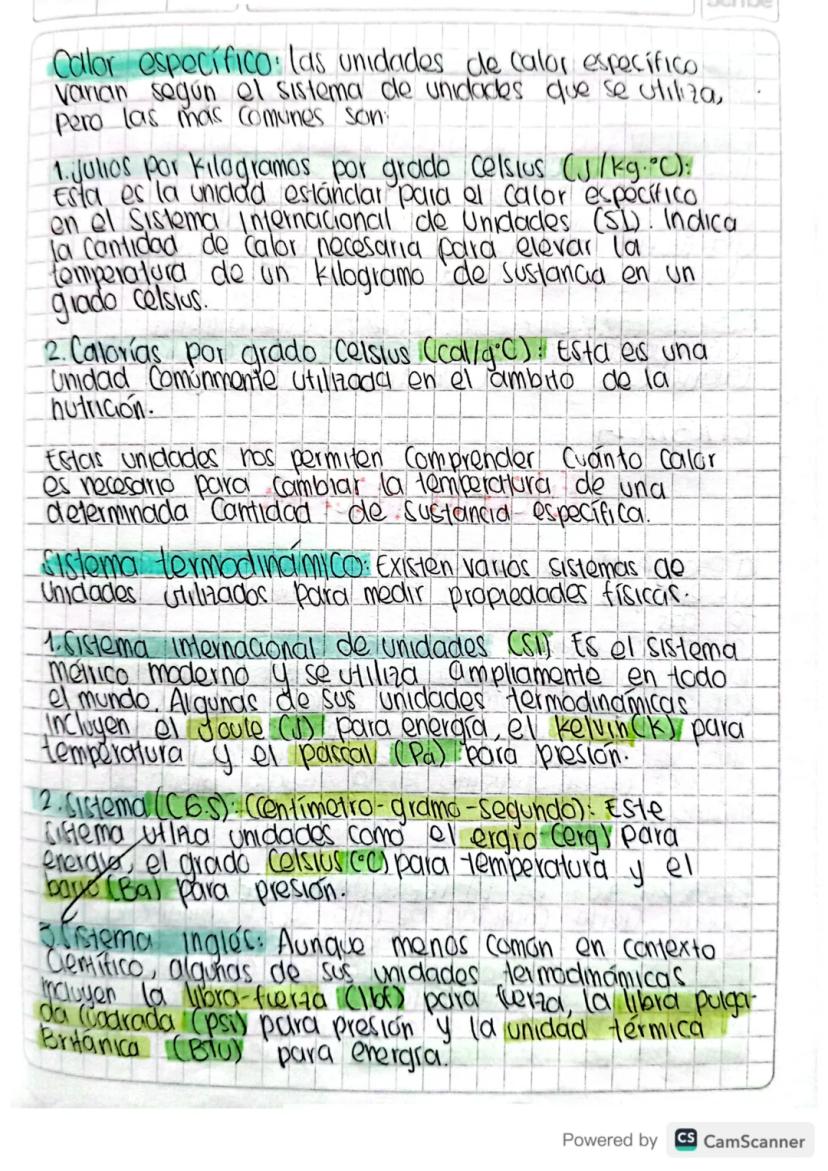 Calor específico: las unidades de calor específico
varían según el sistema de unidades que se utiliza,
pero las más comunes son:
1. Julios por kilogramos por grado Celsius (J/kg·°C):
Esta es la unidad estándar para el calor específico
en el Sistema Internacional de Unidades (SI). Indica
la cantidad de calor necesaria para elevar la
temperatura de un kilogramo de sustancia en un
grado Celsius.
2. Calorías por grado Celsius (cal/g°C): Esta es una
unidad comúnmente utilizada en el ámbito de la
nutrición.
Estas unidades nos permiten comprender cuánto calor
es necesario para cambiar la temperatura de una
determinada cantidad de sustancia específica.
Sistema termodinámico: Existen varios sistemas de
unidades utilizados para medir propiedades físicas.
1. Sistema internacional de unidades (SI) Es el sistema
métrico moderno y se utiliza ampliamente en todo
el mundo. Algunas de sus unidades termodinámicas
incluyen el Joule (J) para energía, el Kelvin (K) para
temperatura y el pascal (Pa) para presión.
2. Sistema (C.G.S): (Centímetro-gramo-segundo): Este
sistema utiliza unidades como el ergio (erg) para
energía, el grado Celsius (°C) para temperatura y el
bario (Ba) para presión.
3. Sistema inglés: Aunque menos común en contexto
Científico, algunas de sus unidades termodinámicas
incluyen la libra-fuerza (lbf) para fuerza, la libra pulga-
da cuadrada (psi) para presión y la unidad térmica
Británica (BTU) para energía.
Powered by CS CamScanner